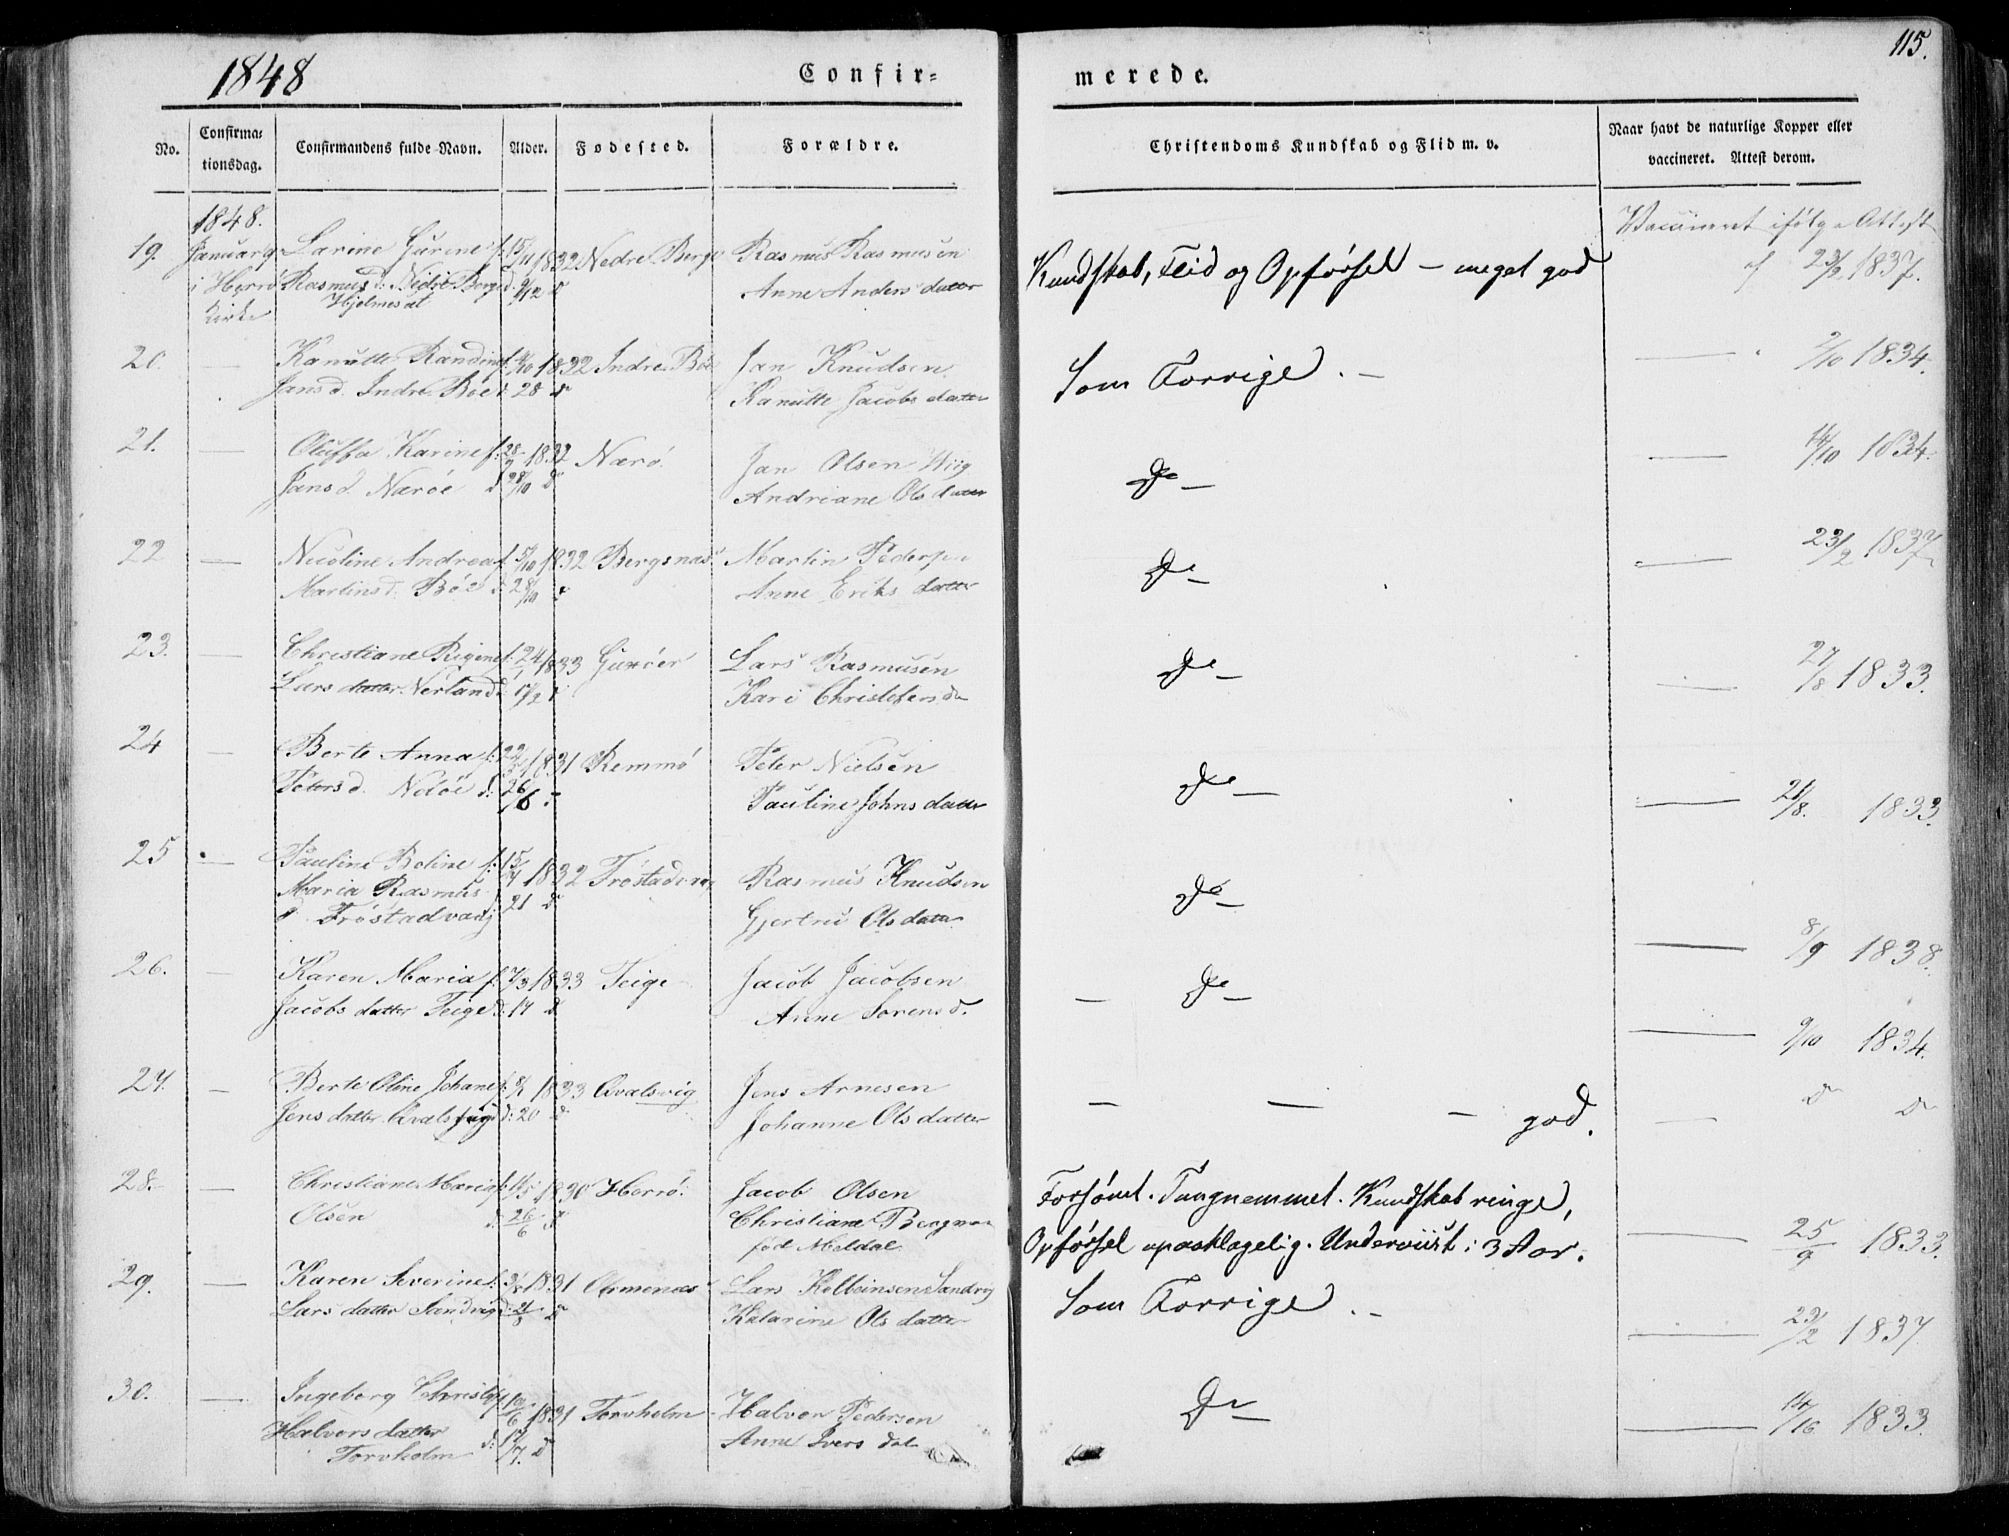 1848
Confir-
merede.
115.
No.
Confirma-
tionsdag.
Confirmandens fulde Navn.
Alder.
Fødested.
Forældre.
Christendoms Kundskab og Flid m. v.
Naar havt de naturlige Kopper eller
vaccineret. Attest derom.
1848.
19. Januar Larine Gurine f: 15/11 1832 Nedre Berge Rasmus Rasmusen
i Herrø Rasmus d: Nedre Berge d: 9/12 d Anne Anders datter
Kirke Hjelmesæt
Kundskab, Flid og Opførsel – meget god
Vaccineret ifølge Attest
af 23/2 1837.
20. — Kanutte Randine f. 4/10 1832 Indre Böe Jan Knudsen
Jans d. Indre Böe d. 28 d Kanutte Jacobs datter
Som Forrige. –
— 2/10 1834.
21. — Oluffa Karine f: 28/9 1832 Nærö. Jan Olsen Wiig
Jans d. Næröe d 28/10 d Andriane Ols datter
Do –
— 14/10 1834.
22 — Nicoline Andrea f. 5/10 1832 Bergsnæs Martin Pedersen
Martins d. Böe d 28/10 d Anne Eriks datter
Do –
— 23/2 1837
23. — Christiane Rigine f. 24/1 1833 Gurröer Lars Rasmusen
Lars datter Nerland d. 17/2 d Kari Christofers da
Do –
— 27/8 1833.
24 — Berte Anna f: 22/5 1831 Remmö Peter Nielsen
Peters d. d. 26/6 - Pauline Johns datter
Do –
— 21/8. 1833.
25 — Pauline Boline f: 15/7 1832 Fröstadvaag Rasmus Knudsen
Maria Rasmus d. 21 d Gjertru Ols datter
d Fröstadvaag
Do –
— 8/9 1838.
26. — Karen Maria f. 7/3 1833 Teige Jacob Jacobsen
Jacobs datter Teige d. 17 d Anne Sörens d.
– Do –
— 9/10 1834.
27. — Berte Oline Johane f. 8/1 1833 Qvalsvig Jens Arnesen
Jens datter Qvalsvig d: 20 d Johanne Ols datter
– – – god.
— d d
28. — Christiane Maria f. 11/5 1830 Herrö. Jacob Olsen
Olsen d. 26/6 d Christiane
fød Meldal
Forsømt. Tungnemmet. Kundskab ringe,
Opførsel upaaklagelig. Underviist i 3 Aar.
— 25/9 1833.
29. — Karen Severine f. 1831 Ormenæs Lars Kolbeinsen Sandvig
Lars datter Sandvig d. d Katarine Ols datter
Som Forrige. –
— 23/2 1837
30. — Ingeborg f. 10/6 1831 Torvholm Halvor Pedersen
Halvors datter d: 17/7. d Anne Ivers dat
Torvholm
Do –
— 14/10 1833.